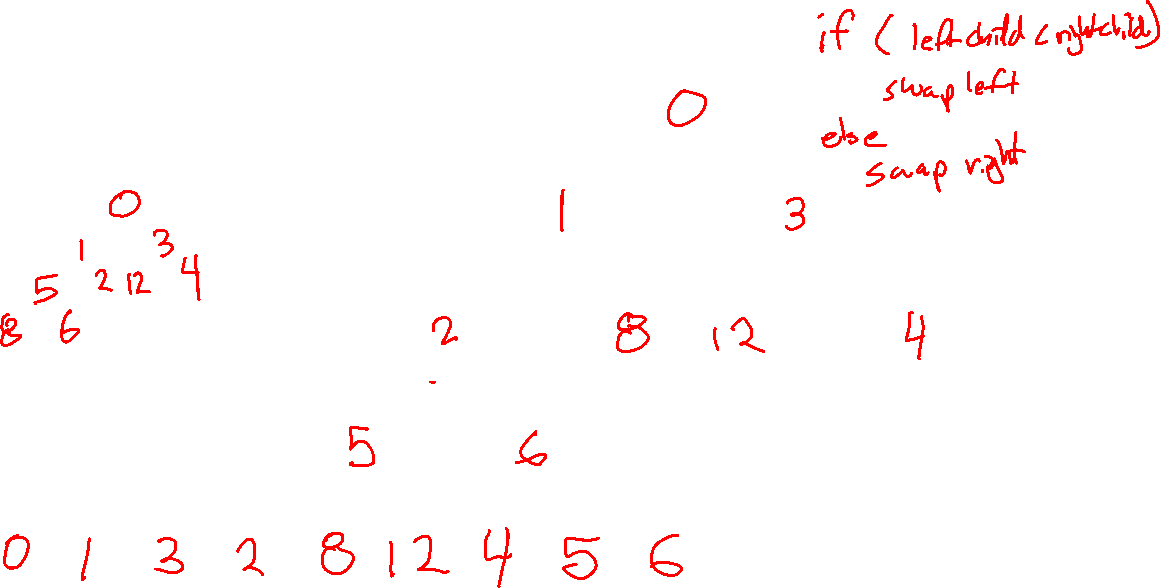 if ( leftchild < rightchild)
swap left
0
else
swap right
0
1 3
1 3
5 2 12 4
8 6
2 8 12 4
5 6
0 1 3 2 8 12 4 5 6